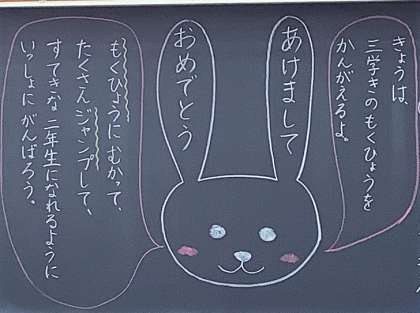 きょうは、
三学きのもくひょうを
かんがえるよ。
あけまして
おめでとう
もくひょうにむかって、
たくさんジャンプして、
すてきな二年生になれるように
いっしょにがんばろう。